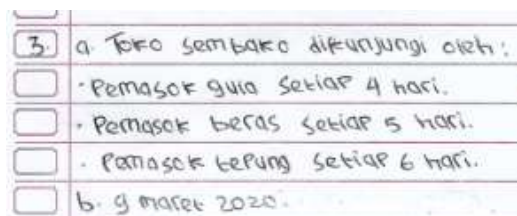 3. a. Toko sembako dikunjungi oleh:
· Pemasok gula setiap 4 hari.
· Pemasok beras setiap 5 hari.
· Pemasok tepung setiap 6 hari.
b. 9 maret 2020.